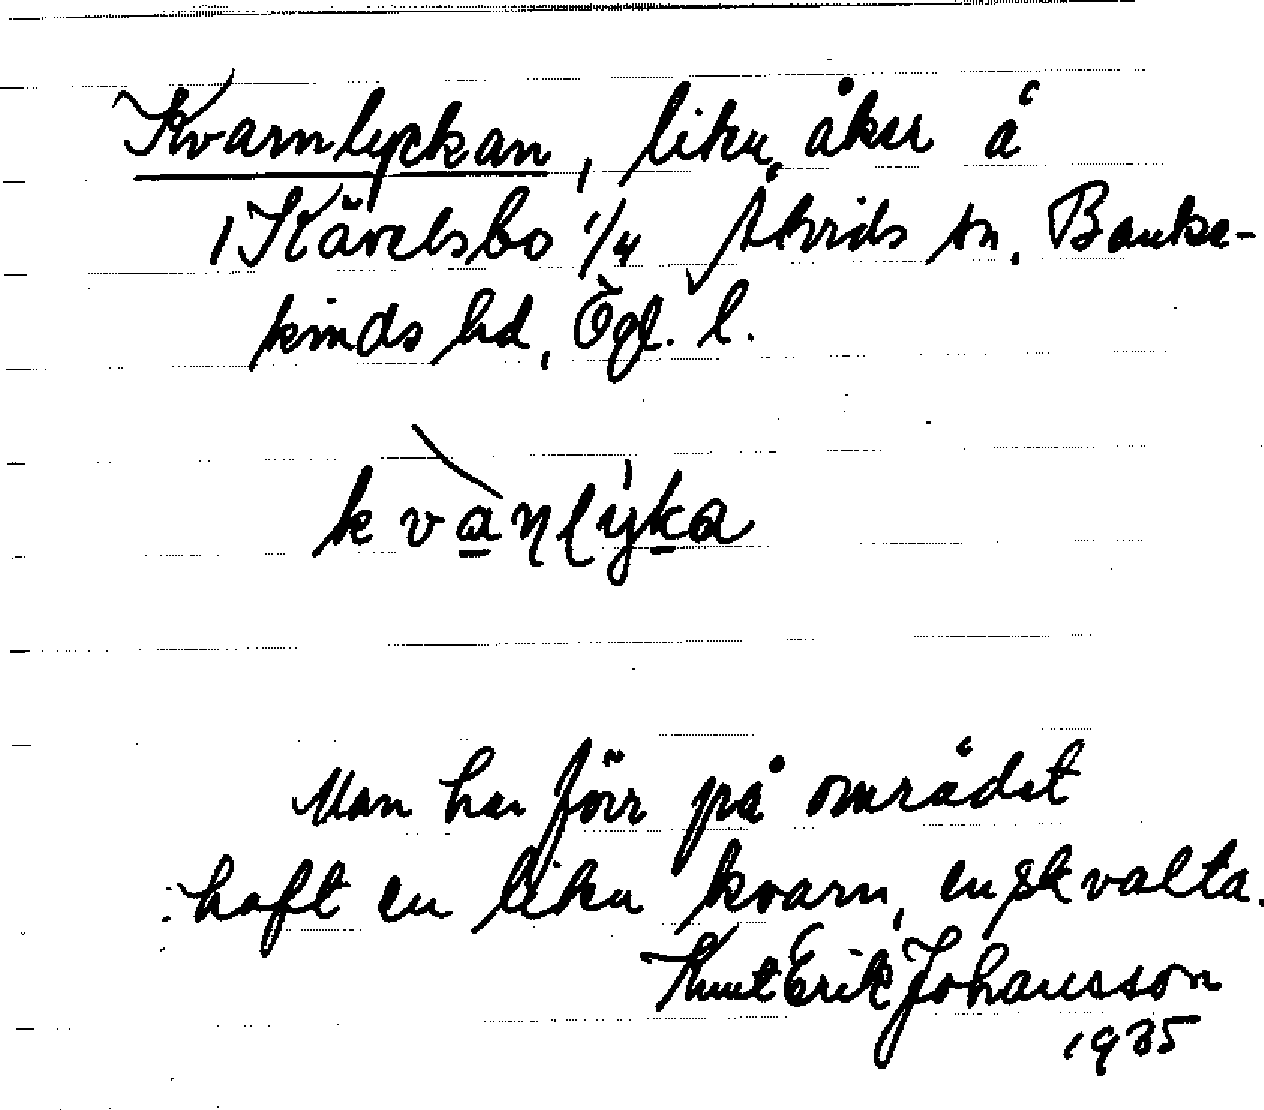 Kvarnlyckan, liten åker å
Kävelsbo 1/4 Åtvids sn, Banke-
kinds hd, Ögl. l.
kvaɳlyka
Man har förr på området
haft en liten kvarn, en skvalta.
Knut Erik Johansson
1935